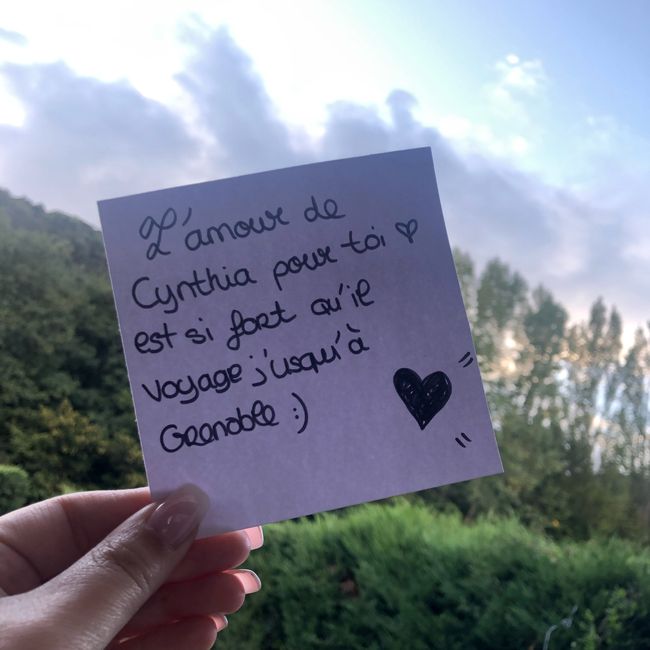 L'amour de
Cynthia pour toi ♡
est si fort qu'il
voyage j'usqu'à
Grenoble :)